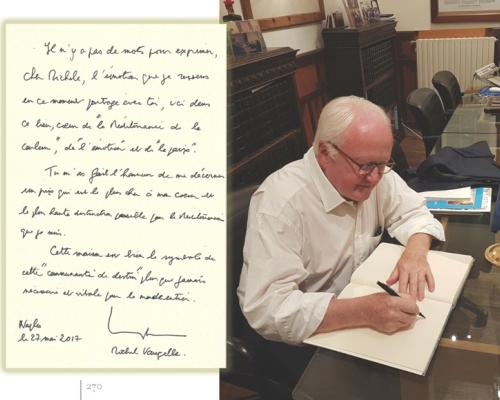 Il n'y a pas de mots pour exprimer,
cher Michele, l'émotion que je ressens
en ce moment partagé avec toi, ici dans
ce lieu, cœur de la "Méditerranée de la
couleur", de "l'émotion" et de "la paix".
Tu m'as fait l'honneur de me décerner
un prix qui est le plus cher à mon cœur et
la plus haute distinction possible pour le Méditerranéen
que je suis.
Cette maison est bien le symbole de
cette "communauté de destin" plus que jamais
nécessaire et vitale pour la
Naples
le 27 mai 2017
Michel
270